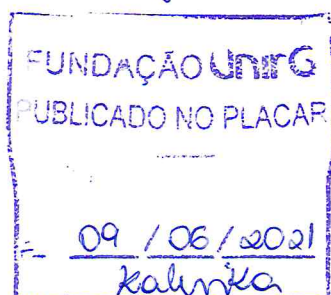 FUNDAÇÃO UnirG
PUBLICADO NO PLACAR
09 / 06 / 2021